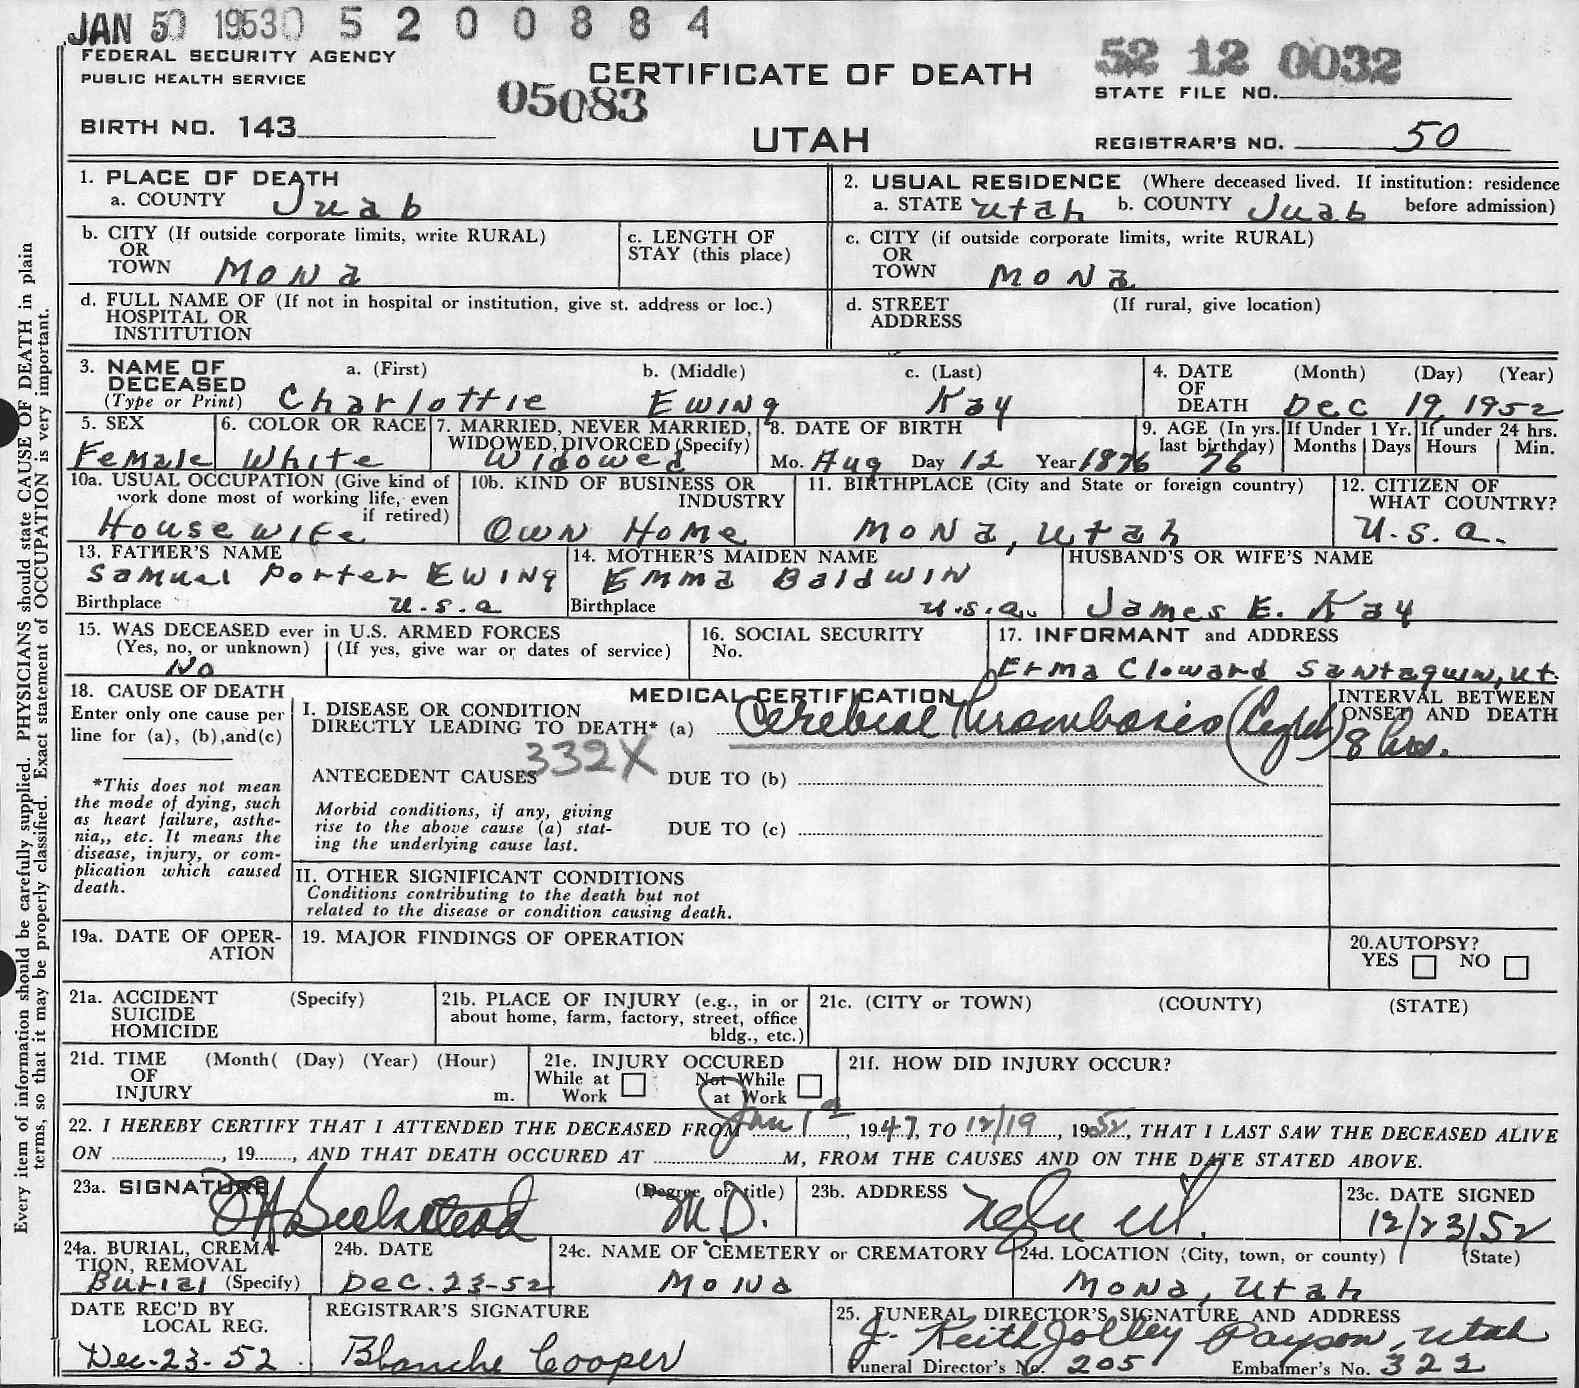 JAN 30 1953 0 5 2 0 0 8 8 4
FEDERAL SECURITY AGENCY
PUBLIC HEALTH SERVICE
CERTIFICATE OF DEATH
52 12 0032
STATE FILE NO.
05083
BIRTH NO. 143
UTAH
REGISTRAR'S NO. 50
1. PLACE OF DEATH
a. COUNTY Juab
2. USUAL RESIDENCE (Where deceased lived. If institution: residence before admission)
a. STATE Utah b. COUNTY Juab
b. CITY (If outside corporate limits, write RURAL)
OR
TOWN Mona
c. LENGTH OF
STAY (this place)
c. CITY (if outside corporate limits, write RURAL)
OR
TOWN Mona
d. FULL NAME OF (If not in hospital or institution, give st. address or loc.)
HOSPITAL OR
INSTITUTION
d. STREET (If rural, give location)
ADDRESS
3. NAME OF DECEASED
(Type or Print)
a. (First) b. (Middle) c. (Last)
Charlottie Ewing Kay
4. DATE OF DEATH (Month) (Day) (Year)
Dec 19, 1952
5. SEX
Female
6. COLOR OR RACE
White
7. MARRIED, NEVER MARRIED,
WIDOWED, DIVORCED (Specify)
Widowed
8. DATE OF BIRTH
Mo. Aug Day 12 Year 1876
9. AGE (In yrs. last birthday)
76
If Under 1 Yr.
Months Days
If under 24 hrs.
Hours Min.
10a. USUAL OCCUPATION (Give kind of
work done most of working life, even
if retired)
Housewife
10b. KIND OF BUSINESS OR
INDUSTRY
Own Home
11. BIRTHPLACE (City and State or foreign country)
Mona, Utah
12. CITIZEN OF
WHAT COUNTRY?
U.S.A.
13. FATHER'S NAME
Samuel Porter Ewing
Birthplace U.S.A
14. MOTHER'S MAIDEN NAME
Emma Baldwin
Birthplace U.S.A.
HUSBAND'S OR WIFE'S NAME
James E. Kay
15. WAS DECEASED ever in U.S. ARMED FORCES
(Yes, no, or unknown) (If yes, give war or dates of service)
No
16. SOCIAL SECURITY
No.
17. INFORMANT and ADDRESS
Erma Cloward Santaquin, Ut.
18. CAUSE OF DEATH
Enter only one cause per
line for (a), (b), and (c)
*This does not mean
the mode of dying, such
as heart failure, asthe-
nia,, etc. It means the
disease, injury, or com-
plication which caused
death.
MEDICAL CERTIFICATION
I. DISEASE OR CONDITION
DIRECTLY LEADING TO DEATH* (a) Cerebral Thrombosis (Right)
INTERVAL BETWEEN
ONSET AND DEATH
8 hrs.
332X
ANTECEDENT CAUSES DUE TO (b)
Morbid conditions, if any, giving
rise to the above cause (a) stat-
ing the underlying cause last.
DUE TO (c)
II. OTHER SIGNIFICANT CONDITIONS
Conditions contributing to the death but not
related to the disease or condition causing death.
19a. DATE OF OPER-
ATION
19. MAJOR FINDINGS OF OPERATION
20. AUTOPSY?
YES NO
21a. ACCIDENT (Specify)
SUICIDE
HOMICIDE
21b. PLACE OF INJURY (e.g., in or
about home, farm, factory, street, office
bldg., etc.)
21c. (CITY or TOWN) (COUNTY) (STATE)
21d. TIME (Month( (Day) (Year) (Hour)
OF
INJURY m.
21e. INJURY OCCURED
While at Work Not While at Work
21f. HOW DID INJURY OCCUR?
22. I HEREBY CERTIFY THAT I ATTENDED THE DECEASED FROM Jan 1st, 1947, TO 12/19, 1952, THAT I LAST SAW THE DECEASED ALIVE
ON , 19 , AND THAT DEATH OCCURED AT M, FROM THE CAUSES AND ON THE DATE STATED ABOVE.
23a. SIGNATURE (Degree or title)
M.D.
23b. ADDRESS
Nephi Ut.
23c. DATE SIGNED
12/23/52
24a. BURIAL, CREMA-
TION, REMOVAL
Burial (Specify)
24b. DATE
Dec. 23-52
24c. NAME OF CEMETERY or CREMATORY
Mona
24d. LOCATION (City, town, or county) (State)
Mona, Utah
DATE REC'D BY
LOCAL REG.
Dec-23-52
REGISTRAR'S SIGNATURE
Blanche Cooper
25. FUNERAL DIRECTOR'S SIGNATURE AND ADDRESS
J. Keith Jolley Payson, Utah
Funeral Director's No. 205 Embalmer's No. 322
Every item of information should be carefully supplied. PHYSICIANS should state CAUSE OF DEATH in plain
terms, so that it may be properly classified. Exact statement of OCCUPATION is very important.